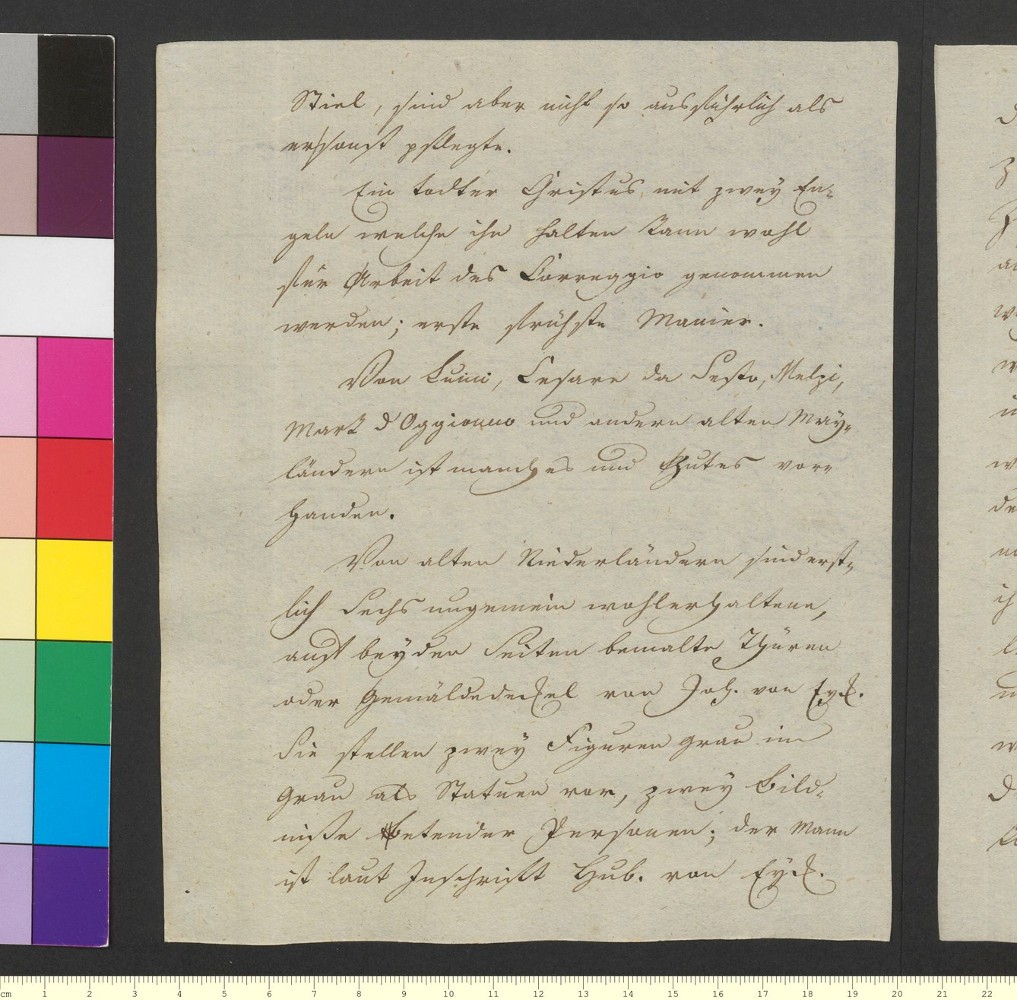 Stiel, sind aber nicht so ausführlich als
er sonst pflegte.
Ein todter Christus mit zwey En-
geln welche ihn halten kann wohl
für Arbeit des Correggio genommen
werden; erste frühste Manier.
Von Luini, Cesare da Sesto, Melzi,
Mark d'Oggionno und andern alten May-
ländern ist manches und Gutes vor-
handen.
Von alten Niederländern sind erst-
lich Sechs ungemein wohlerhaltene,
auf beyden Seiten bemalte Thüren
oder Gemäldedeckel von Joh. von Eyck.
Sie stellen zwey Figuren grau in
Grau als Statuen vor, zwey Bild-
niße betender Personen; der Mann
ist laut Inschrift Hub. von Eyck.
cm 1 2 3 4 5 6 7 8 9 10 11 12 13 14 15 16 17 18 19 20 21 22